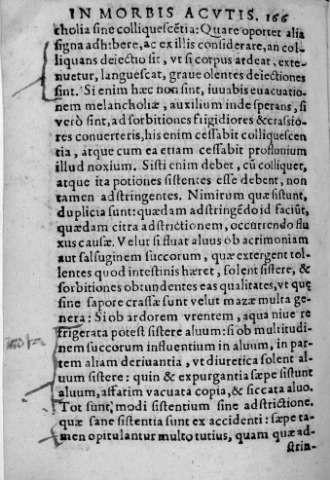 IN MORBIS ACVTIS. 166
cholia sine colliquescẽtia: Quare oportet alia
signa adhibere, ac ex illis considerare, an col-
liquans deiectio sit, vt si corpus ardeat, exte-
nuetur, languescat, graue olentes deiectiones
sint. Si enim hæc non sint, iuuabis euacuatio
nem melancholiæ, auxilium inde sperans, si
verò sint, ad sorbitiones frigidiores & crassio-
res conuerteris, his enim cessabit colliquescen
tia, atque cum ea etiam cessabit profluuium
illud noxium. Sisti enim debet, cũ colliquet,
atque ita potiones sistentes esse debent, non
tamen adstringentes. Nimirum quæ sistunt,
duplicia sunt: quædam adstringẽdo id faciũt,
quædam citra adstrictionem, occurrendo flu
xus causæ. Velut si fluat aluus ob acrimoniam
aut salsuginem succorum, quæ extergent tol-
lentes quod intestinis hæret, solent sistere, &
sorbitiones obtundentes eas qualitates, vt quę
sine sapore crassæ sunt velut mazæ multa ge
nera: Si ob ardorem vrentem, aqua niue re
frigerata potest sistere aluum: si ob multitudi
nem succorum influentium in aluum, in par-
tem aliam deriuantia, vt diuretica solent al-
uum sistere: quin & expurgantia sæpe sistunt
aluum, affatim vacuata copia, & siccata aluo.
Tot sunt modi sistentium sine adstrictione.
quæ sane sistentia sunt ex accidenti: sæpe ta-
men opitulantur multo tutius, quam quæ ad-
strin-